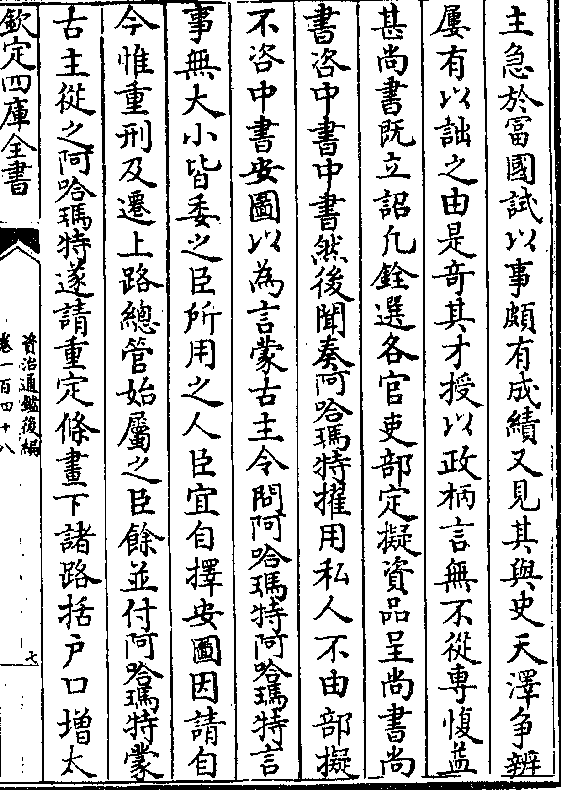 主急於富國試以事頗有成績又見其與史天澤爭辨
屢有以詘之由是竒其才授以政柄言無不從専愎益
甚尚書既立詔凡銓選各官吏部定擬資品呈尚書尚
書咨中書中書然後聞奏阿哈瑪特擢用私人不由部擬
不咨中書安圖以為言蒙古主令問阿哈瑪特阿哈瑪特言
事無大小皆委之臣所用之人臣宜自擇安圖因請自
今惟重刑及遷上路總管始屬之臣餘並付阿哈瑪特蒙
古主從之阿哈瑪特遂請重定條畫下諸路括户口增太
欽定四庫全書
資治通鑑後編
卷一百四十八
七